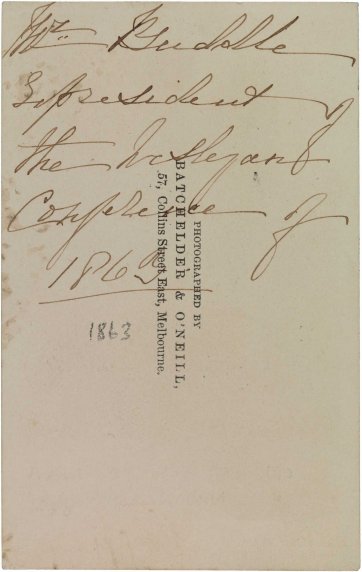 Mr Buddle
President of
the Wesleyan
Conference of
1863
1863
PHOTOGRAPHED BY
BATCHELDER & O'NEILL,
57, Collins Street East, Melbourne.